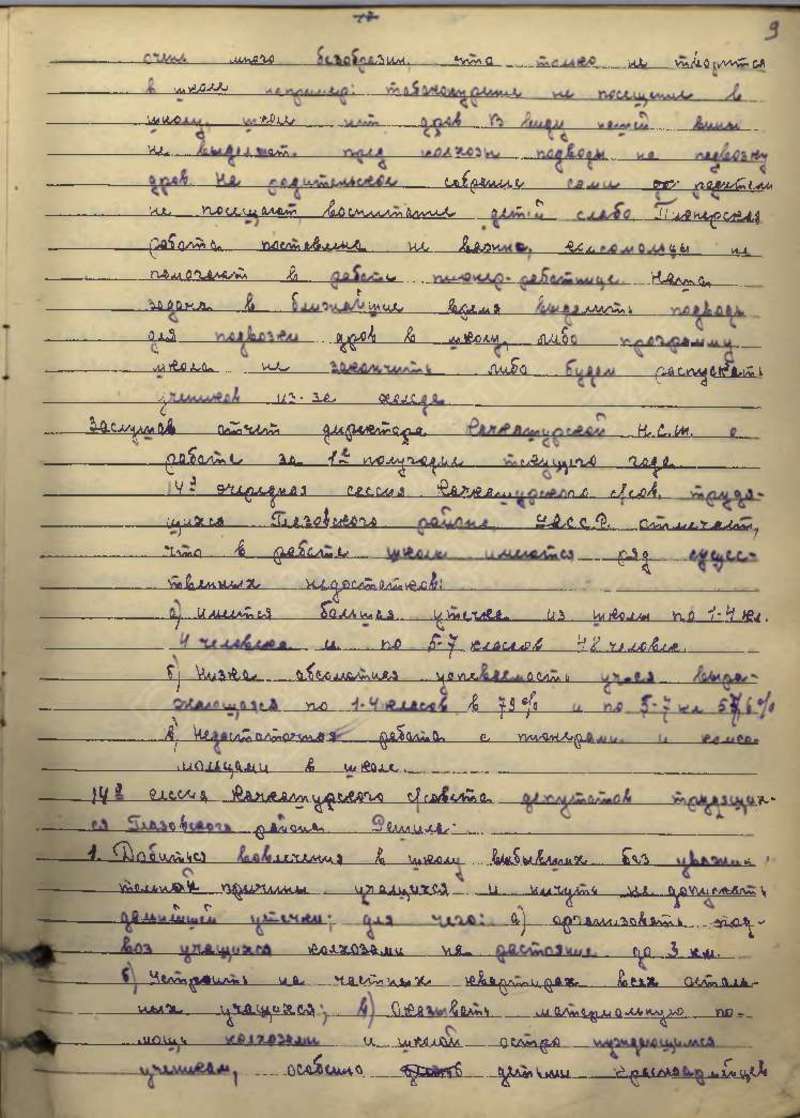 9
очень много безобразии, что только не творится
в школе например: табакокурение не посещение в
школу, школе нет дров В виду нашей вины
не выделяют пред колхозы подводы на подвозку
дров На родительское собрание сами родители
не посещают, воспитание детей слабо Пионерская
работа поставлена не важна, комсомольцы не
помогают в работе пионер-работнице Наша
задача в ближайшие время выделить подводы
для подвозки дров в школу, либо программу
школа не закончить либо будем распускать
учеников из-за холода
Заслушав отчет директора Качкашурской Н.С.Ш. о
работе за 1е полугодие текущего года
14я очередная сессия Качкашурского с/сов. трудя-
щихся Глазовского района УАССР. отмечает,
что в работе школы имеются ряд сущес-
твенных недостатков:
а) имеется большая утечка из школы по 1-4 кл.
4 человека и по 5-7 классов 48 человек.
б) Низка абсолютная успеваемость учася выра-
жающаяся по 1-4 класов в 79% и по 5-7 кл 57,6%
в) Недостаточная работа с пионерами и комсо
мольцами в школе.
14я сессия Качкашурского с/совета депутатов трудящих-
ся Глазовского района Решила:
1. Добиться вовлечения в школу выбывших без уважи
тельной причины учащихся и ничуть не допускать
дальнейшей утечки; для чего: а) организовать под-
воз учащихся колхозами на растояние до 3 км.
б) Устроить на частных квартирах всех осталь-
ных учащихся; в) Оказывать материальную по-
мощь колхозами и школой остро нуждающимся
ученикам, особенно детьми красноармейцев